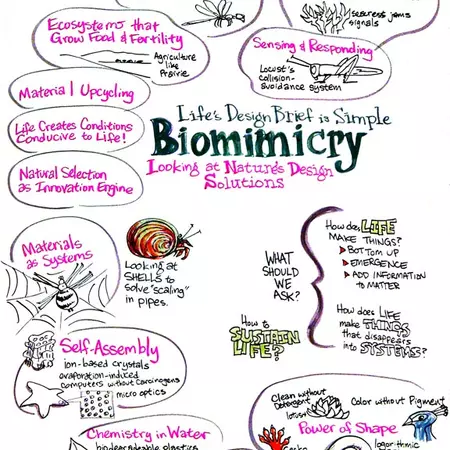 Ecosystems that
Grow Food & Fertility
Agriculture
like
Prairie
seacrest jams
signals
Sensing & Responding
Locust's
collision-
avoidance system
Material Upcycling
Life Creates Conditions
Conducive to Life!
Natural Selection
as Innovation Engine
Life's Design Brief is Simple
Biomimicry
Looking at Nature's Design
Solutions
Materials
as Systems
Looking at
SHELLS to
solve "scaling"
in pipes.
WHAT
SHOULD
WE
ASK?
How does LIFE
MAKE THINGS?
BOTTOM UP
EMERGENCE
ADD INFORMATION
TO MATTER
How does LIFE
make THINGS
that disappears
into SYSTEMS?
How to
SUSTAIN
LIFE?
Self-Assembly
ion-based crystals
evaporation-induced
computers without carcinogens
micro optics
Chemistry in Water
biodegradeable plastics
Clean without
Detergent
lotus
Color without Pigment
Power of Shape
Gecko
logarithmic